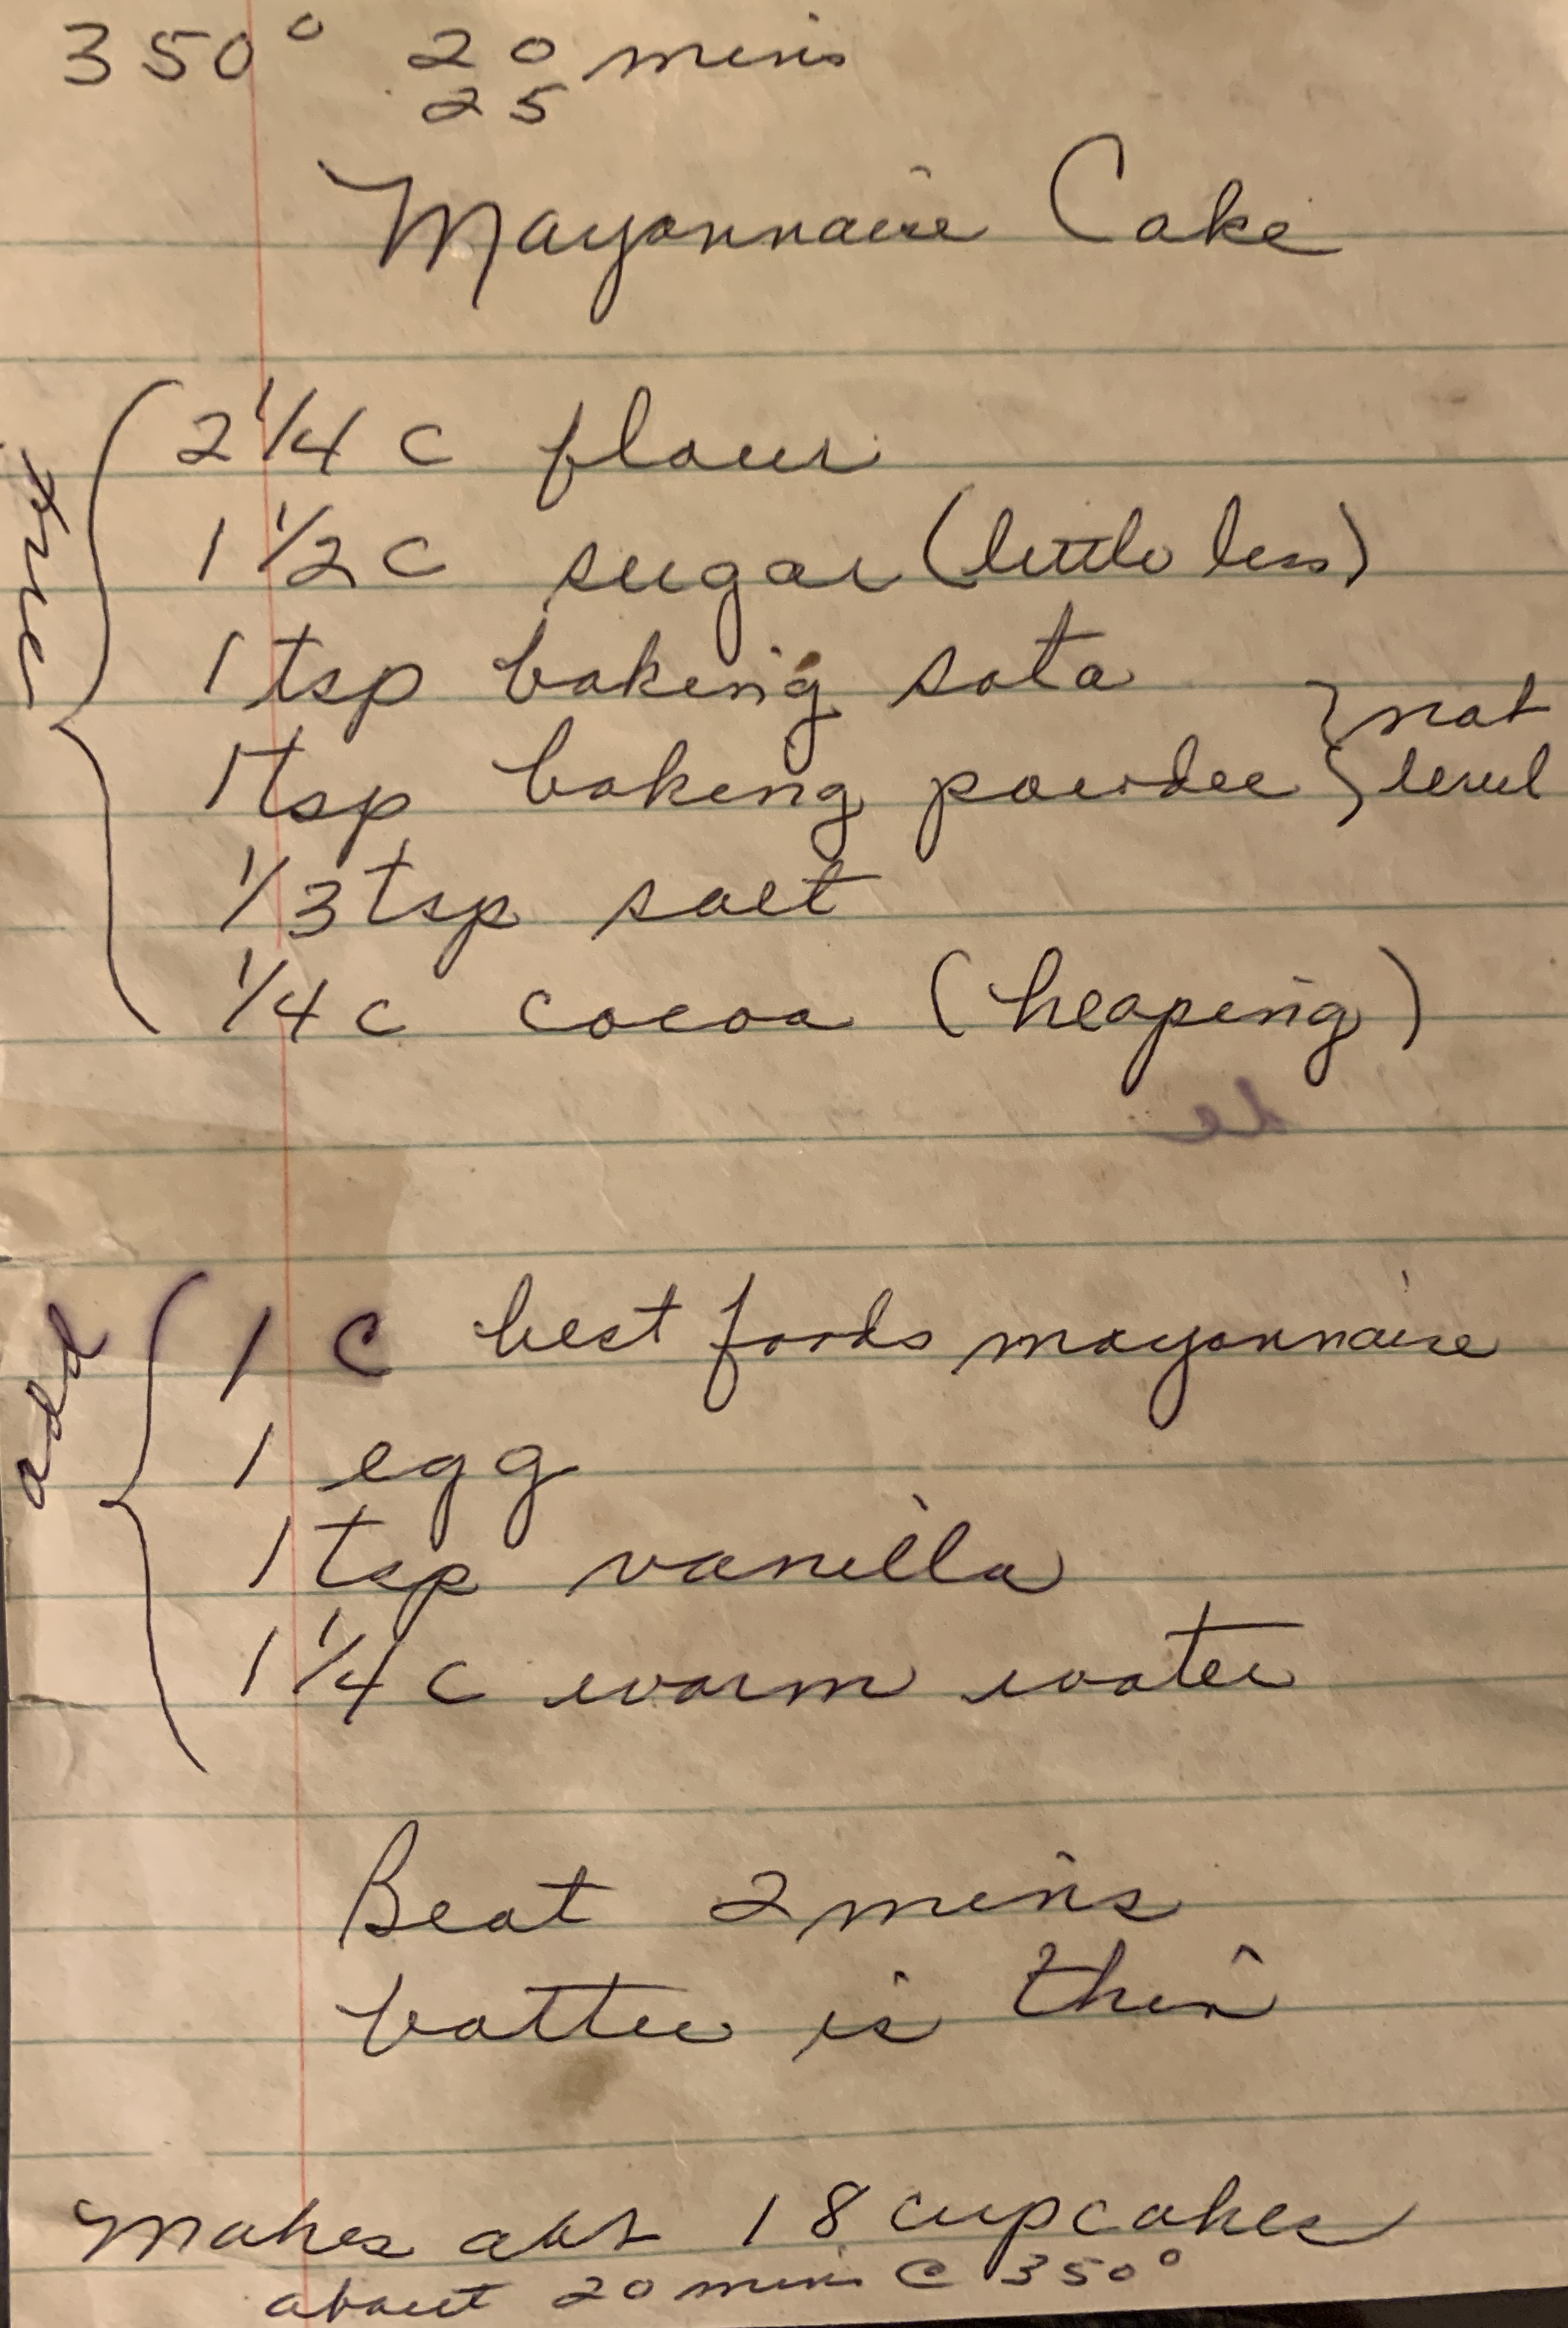 350° 20 mins
25
Mayonnaise Cake
mix
2 1/4 c flour
1 1/2 c sugar (little less)
1 tsp baking sota
1 tsp baking powder } not level
1/3 tsp salt
1/4 c cocoa (heaping)
add
1 c best foods mayonnaise
1 egg
1 tsp vanilla
1 1/4 c warm water
Beat 2 mins
batter is thin
Makes abt 18 cupcakes
about 20 mins @ 350°